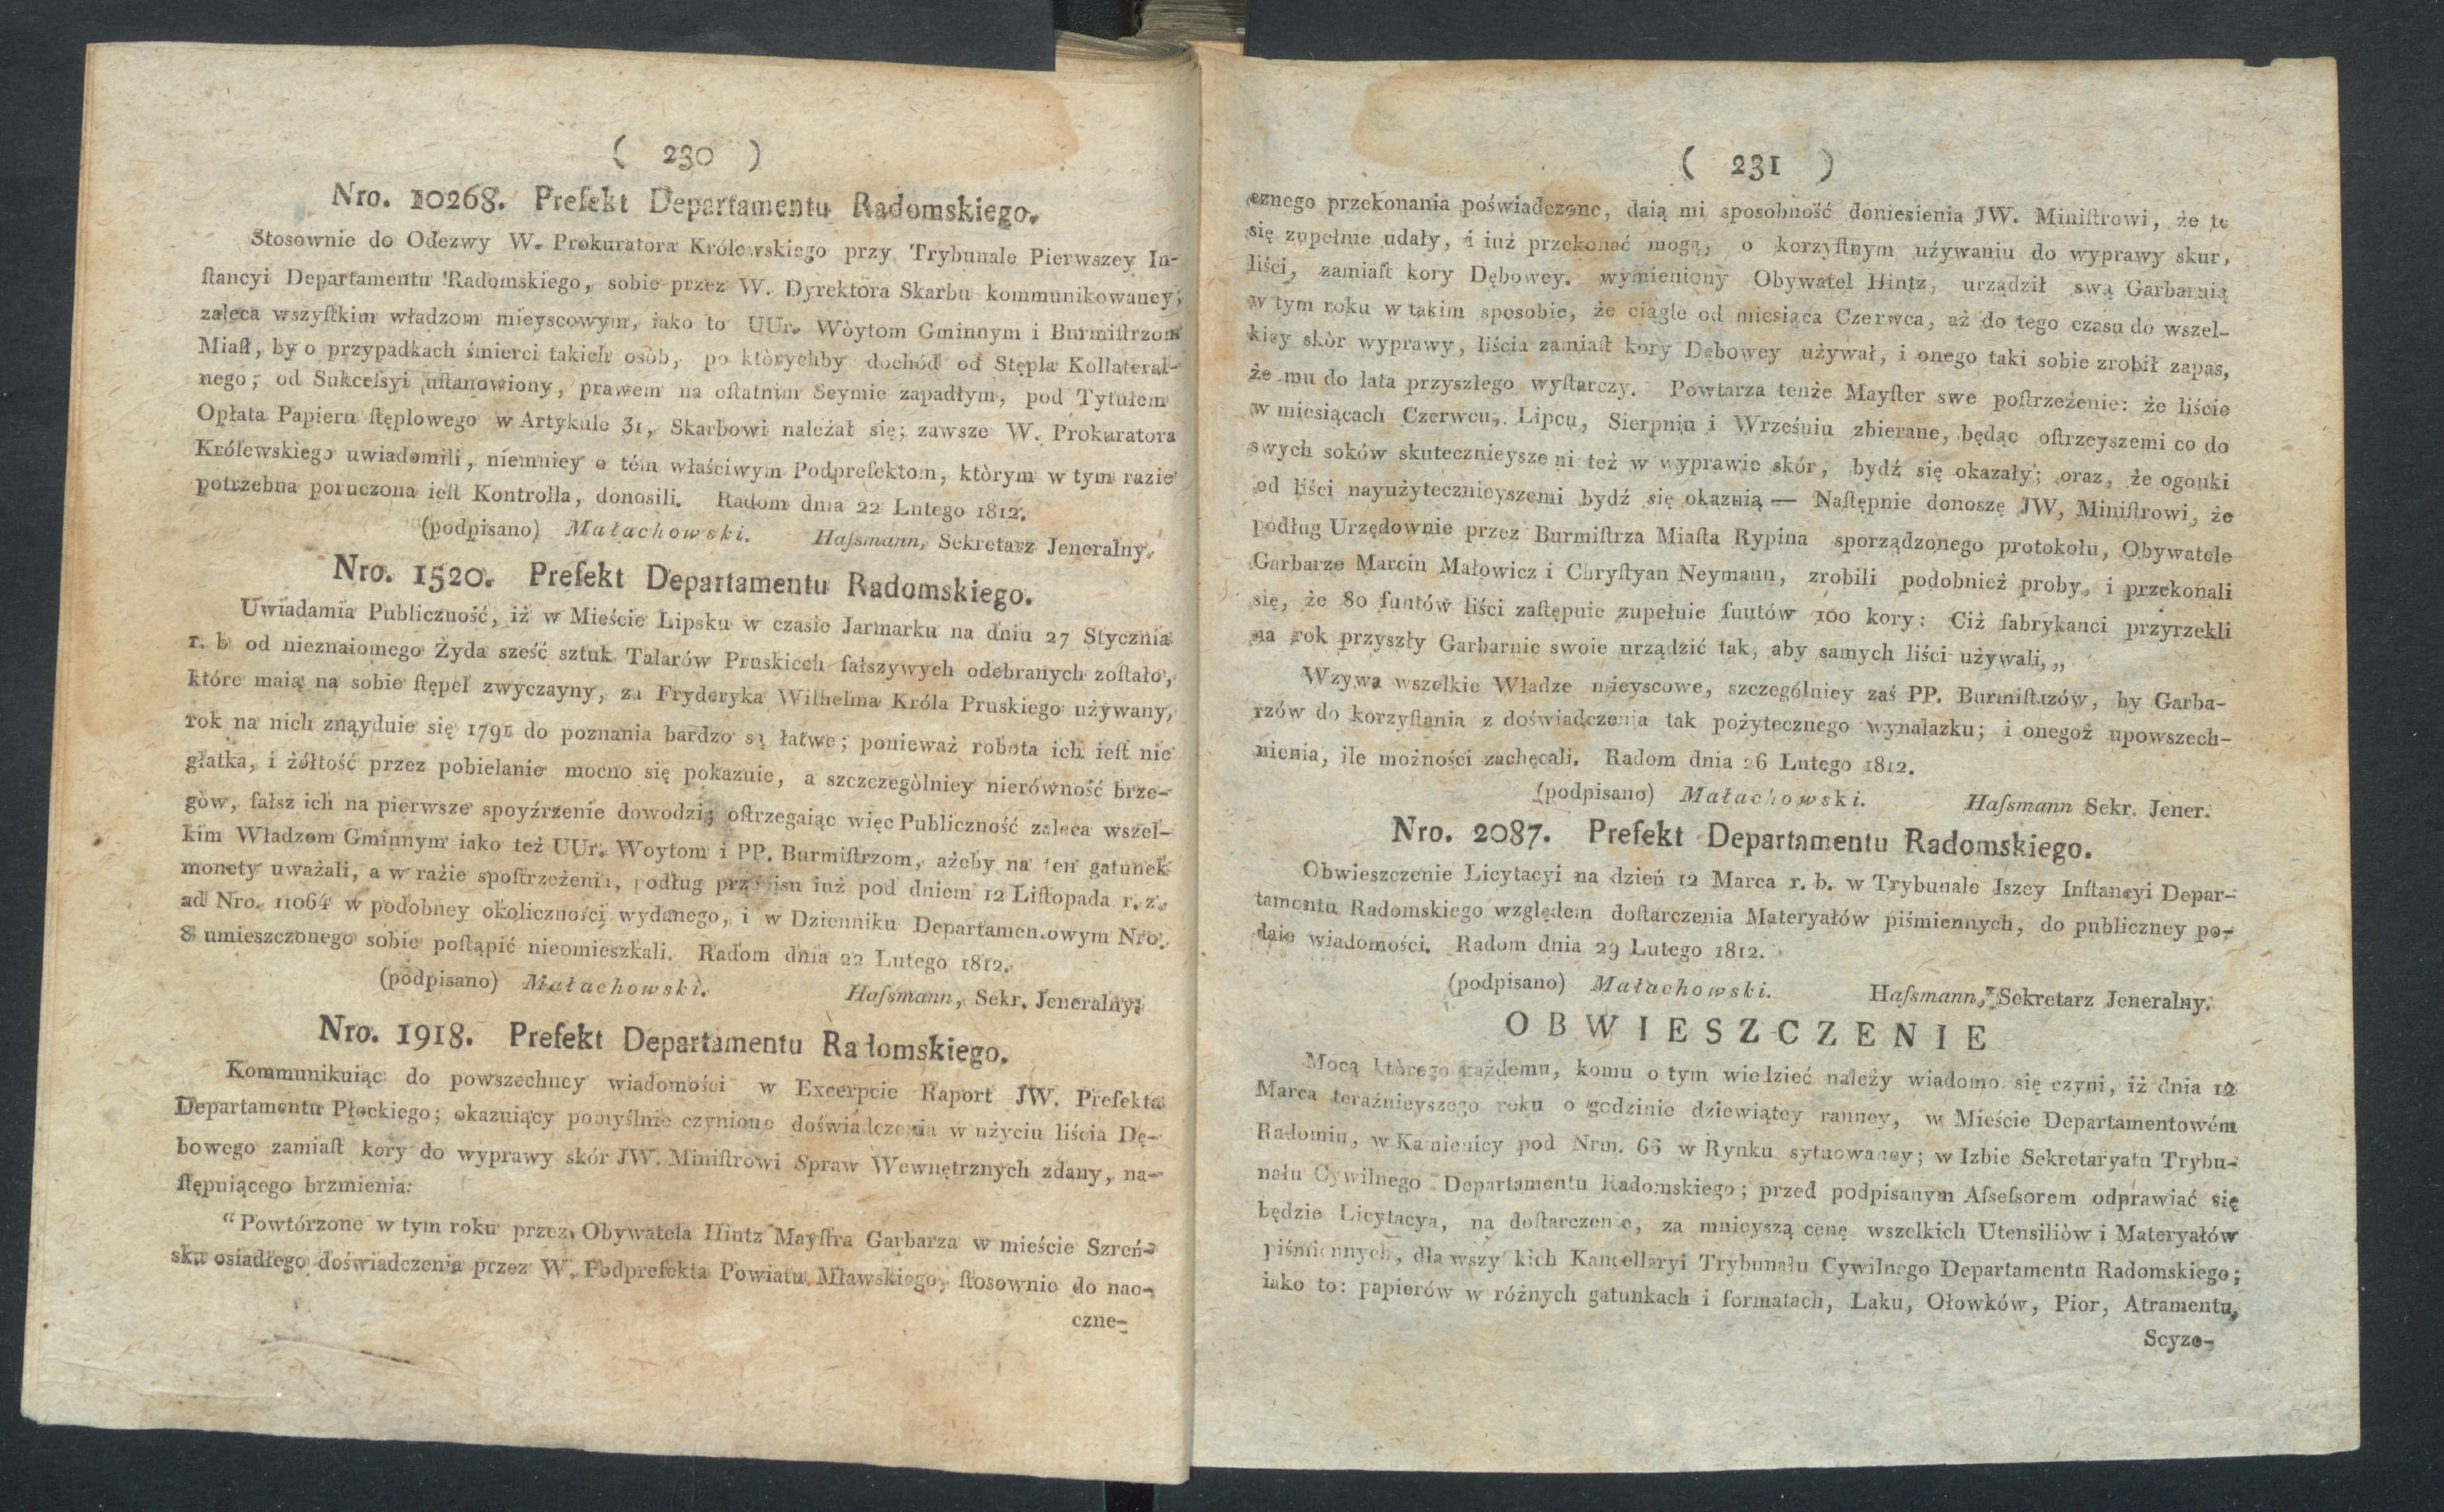 ( 230 )
Nro. 10268. Prefekt Departamentu Radomskiego.
Stosownie do Odezwy W. Prokuratora Królewskiego przy Trybunale Pierwszey In-
ſtancyi Departamentu Radomskiego, sobie przez W. Dyrektora Skarbu kommunikowaney,
zaleca wszyſtkim władzom mieyscowym, iako to UUr. Wòytom Gminnym i Burmiſtrzom
Miaſt, by o przypadkach śmierci takich osòb, po ktòrychby dochód od Stępla Kollateral-
nego, od Sukceſsyi uſtanowiony, prawem na oſtatnim Seymie zapadłym, pod Tytułem
Opłata Papieru ſtęplowego w Artykule 31, Skarbowi należał się; zawsze W. Prokuratora
Królewskiego uwiadomili, niemniey o tém właściwym Podprefektom, ktòrym w tym razie
potrzebna poruczona ieſt Kontrolla, donosili. Radom dnia 22 Lutego 1812.
(podpisano) Małachowski. Haſsmann, Sekretarz Jeneralny.
Nro. 1520. Prefekt Departamentu Radomskiego.
Uwiadamia Publiczność, iż w Mieście Lipsku w czasie Jarmarku na dniu 27 Stycznia
r. b od nieznaiomego Żyda sześć sztuk Talarów Pruskich fałszywych odebranych zoſtało,
które maią na sobie ſtępel zwyczayny, za Fryderyka Wilhelma Króla Pruskiego używany,
rok na nich znayduie się 1791 do poznania bardzo są łatwe; ponieważ robota ich ieſt nie
głatka, i żółtość przez pobielanie mocno się pokazuie, a szczczegòlniey nierówność brze-
gòw, fałsz ich na pierwsze spoyźrzenie dowodzi; oſtrzegaiąc więc Publiczność zaleca wszel-
kim Władzom Gminnym iako też UUr. Woytom i PP. Burmiſtrzom, ażeby na ten gatunek
monety uważali, a w razie spoſtrzeżenia, podług przepisu iuż pod dniem 12 Liſtopada r. z.
ad Nro. 11064 w podobney okoliczności wydanego, i w Dzienniku Departamentowym Nro.
8 umieszczonego sobie poſtąpić nieomieszkali. Radom dnia 22 Lutego 1812.
(podpisano) Małachowski. Haſsmann, Sekr. Jeneralny.
Nro. 1918. Prefekt Departamentu Radomskiego.
Kommunikuiąc do powszechney wiadomości w Excerpcie Raport JW. Prefekta
Departamentu Płockiego; okazuiący pomyślnie czynione doświadczenia w użyciu liścia Dę-
bowego zamiaſt kory do wyprawy skór JW. Miniſtrowi Spraw Wewnętrznych zdany, na-
ſtępuiącego brzmienia:
“Powtórzone w tym roku przez Obywatela Hintz Mayſtra Garbarza w mieście Szreń-
sku osiadłego doświadczenia przez W. Podprefekta Powiatu Mławskiego, ſtosownie do nao-
czne-
( 231 )
cznego przekonania poświadczone, daią mi sposobność doniesienia JW. Miniſtrowi, że te
się zupełnie udały, i iuż przekonać mogą, o korzyſtnym używaniu do wyprawy skur,
liści, zamiaſt kory Dębowey. wymieniony Obywatel Hintz, urządził swą Garbarnią
w tym roku w takim sposobie, że ciągle od miesiąca Czerwca, aż do tego czasu do wszel-
kiey skòr wyprawy, liścia zamiaſt kory Dębowey używał, i onego taki sobie zrobił zapas,
że mu do lata przyszłego wyſtarczy. Powtarza tenże Mayſter swe poſtrzeżenie: że liście
w miesiącach Czerwcu, Lipcu, Sierpniu i Wrześniu zbierane, będąc oſtrzeyszemi co do
swych soków skutecznieyszemi też w wyprawie skór, bydź się okazały; oraz, że ogonki
od liści nayużytecznieyszemi bydź się okazuią — Naſtępnie donoszę JW, Miniſtrowi, że
podług Urzędownie przez Burmiſtrza Miaſta Rypina sporządzonego protokołu, Obywatele
Garbarze Marcin Małowicz i Chryſtyan Neymann, zrobili podobnież proby, i przekonali
się, że 80 funtów liści zaſtępuie zupełnie funtów 100 kory: Ciż fabrykanci przyrzekli
na rok przyszły Garbarnie swoie urządzić tak, aby samych liści używali,,,
Wzywa wszelkie Władze mieyscowe, szczególniey zaś PP. Burmiſtrzów, by Garba-
rzów do korzyſtania z doświadczenia tak pożytecznego wynalazku; i onegoż upowszech-
nienia, ile możności zachęcali. Radom dnia 26 Lutego 1812.
(podpisano) Małachowski. Haſsmann Sekr. Jener.
Nro. 2087. Prefekt Departamentu Radomskiego.
Obwieszczenie Licytacyi na dzień 12 Marca r. b. w Trybunale Iszey Inſtancyi Depar-
tamentu Radomskiego względem doſtarczenia Materyałów piśmiennych, do publiczney po-
daie wiadomości. Radom dnia 29 Lutego 1812.
(podpisano) Małachowski. Haſsmann, Sekretarz Jeneralny.
OBWIESZCZENIE
Mocą którego każdemu, komu o tym wiedzieć należy wiadomo się czyni, iż dnia 12
Marca teraźnieyszego roku o godzinie dziewiątey ranney, w Mieście Departamentowém
Radomiu, w Kamienicy pod Nrm. 66 w Rynku sytuowaney; w Izbie Sekretaryatu Trybu-
nału Cywilnego Departamentu Radomskiego; przed podpisanym Aſseſsorem odprawiać się
będzie Licytacya, na doſtarczenie, za mnieyszą cenę wszelkich Utensiliòw i Materyałów
piśmiennych, dla wszyſtkich Kancellaryi Trybunału Cywilnego Departamentu Radomskiego;
iako to: papierów w różnych gatunkach i formatach, Laku, Ołowków, Pior, Atramentu,
Scyzo-